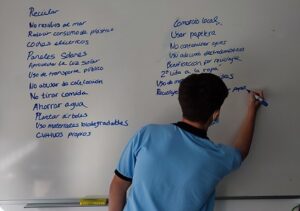 Reciclar
No residuos al mar
Reducir consumo de plástico
Coches eléctricos
Paneles Solares
Aprovechar la luz solar
Uso de transporte público
No abuso de calefacción
No tirar comida
Ahorrar agua
Plantar árboles
Uso materiales biodegradables
Cultivos propios
Comercio local
Usar papelera
No contaminar aguas
Uso adecuado electrodomésticos
Bonificación por reciclaje
2ª vida a la ropa
Uso de